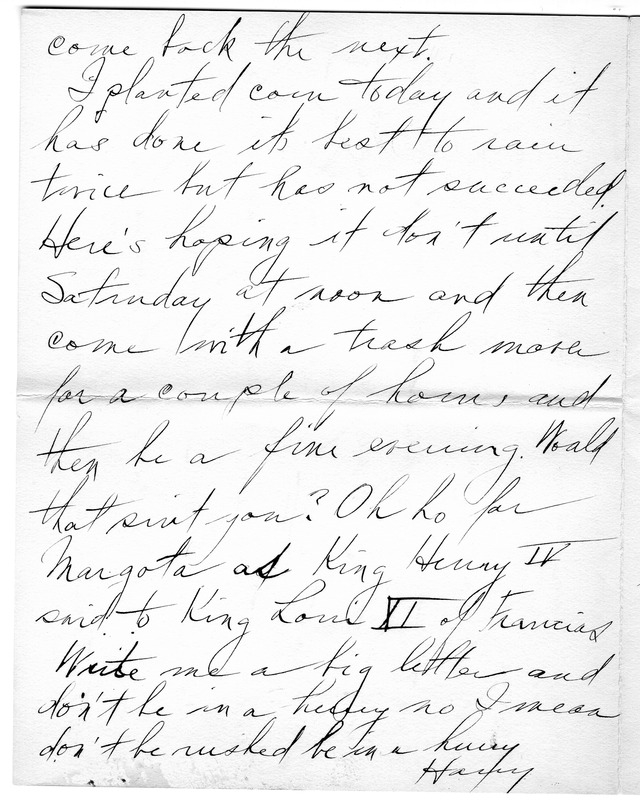 come back the next.
I planted corn today and it
has done its best to rain
twice but has not succeeded.
Here's hoping it don't until
Saturday at noon and then
come with a trash mover
for a couple of hours and
then be a fine evening. Would
that suit you? Oh ho for
Margota as King Henry IV
said to King Loui XI of Francias
Write me a big letter and
don't be in a hurry no I mean
don't be rushed be in a hurry
Harry